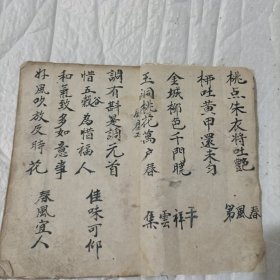 桃点朱衣将吐艷
柳吐黄甲還未匀
春風第
金城柳色千門曉
玉洞桃花萬户春
平祥雲集
調有斟羹謂元首
惜五穀為惜福人
佳味可仰
和氣致多如意事
好風吹放及時花
春風宜人